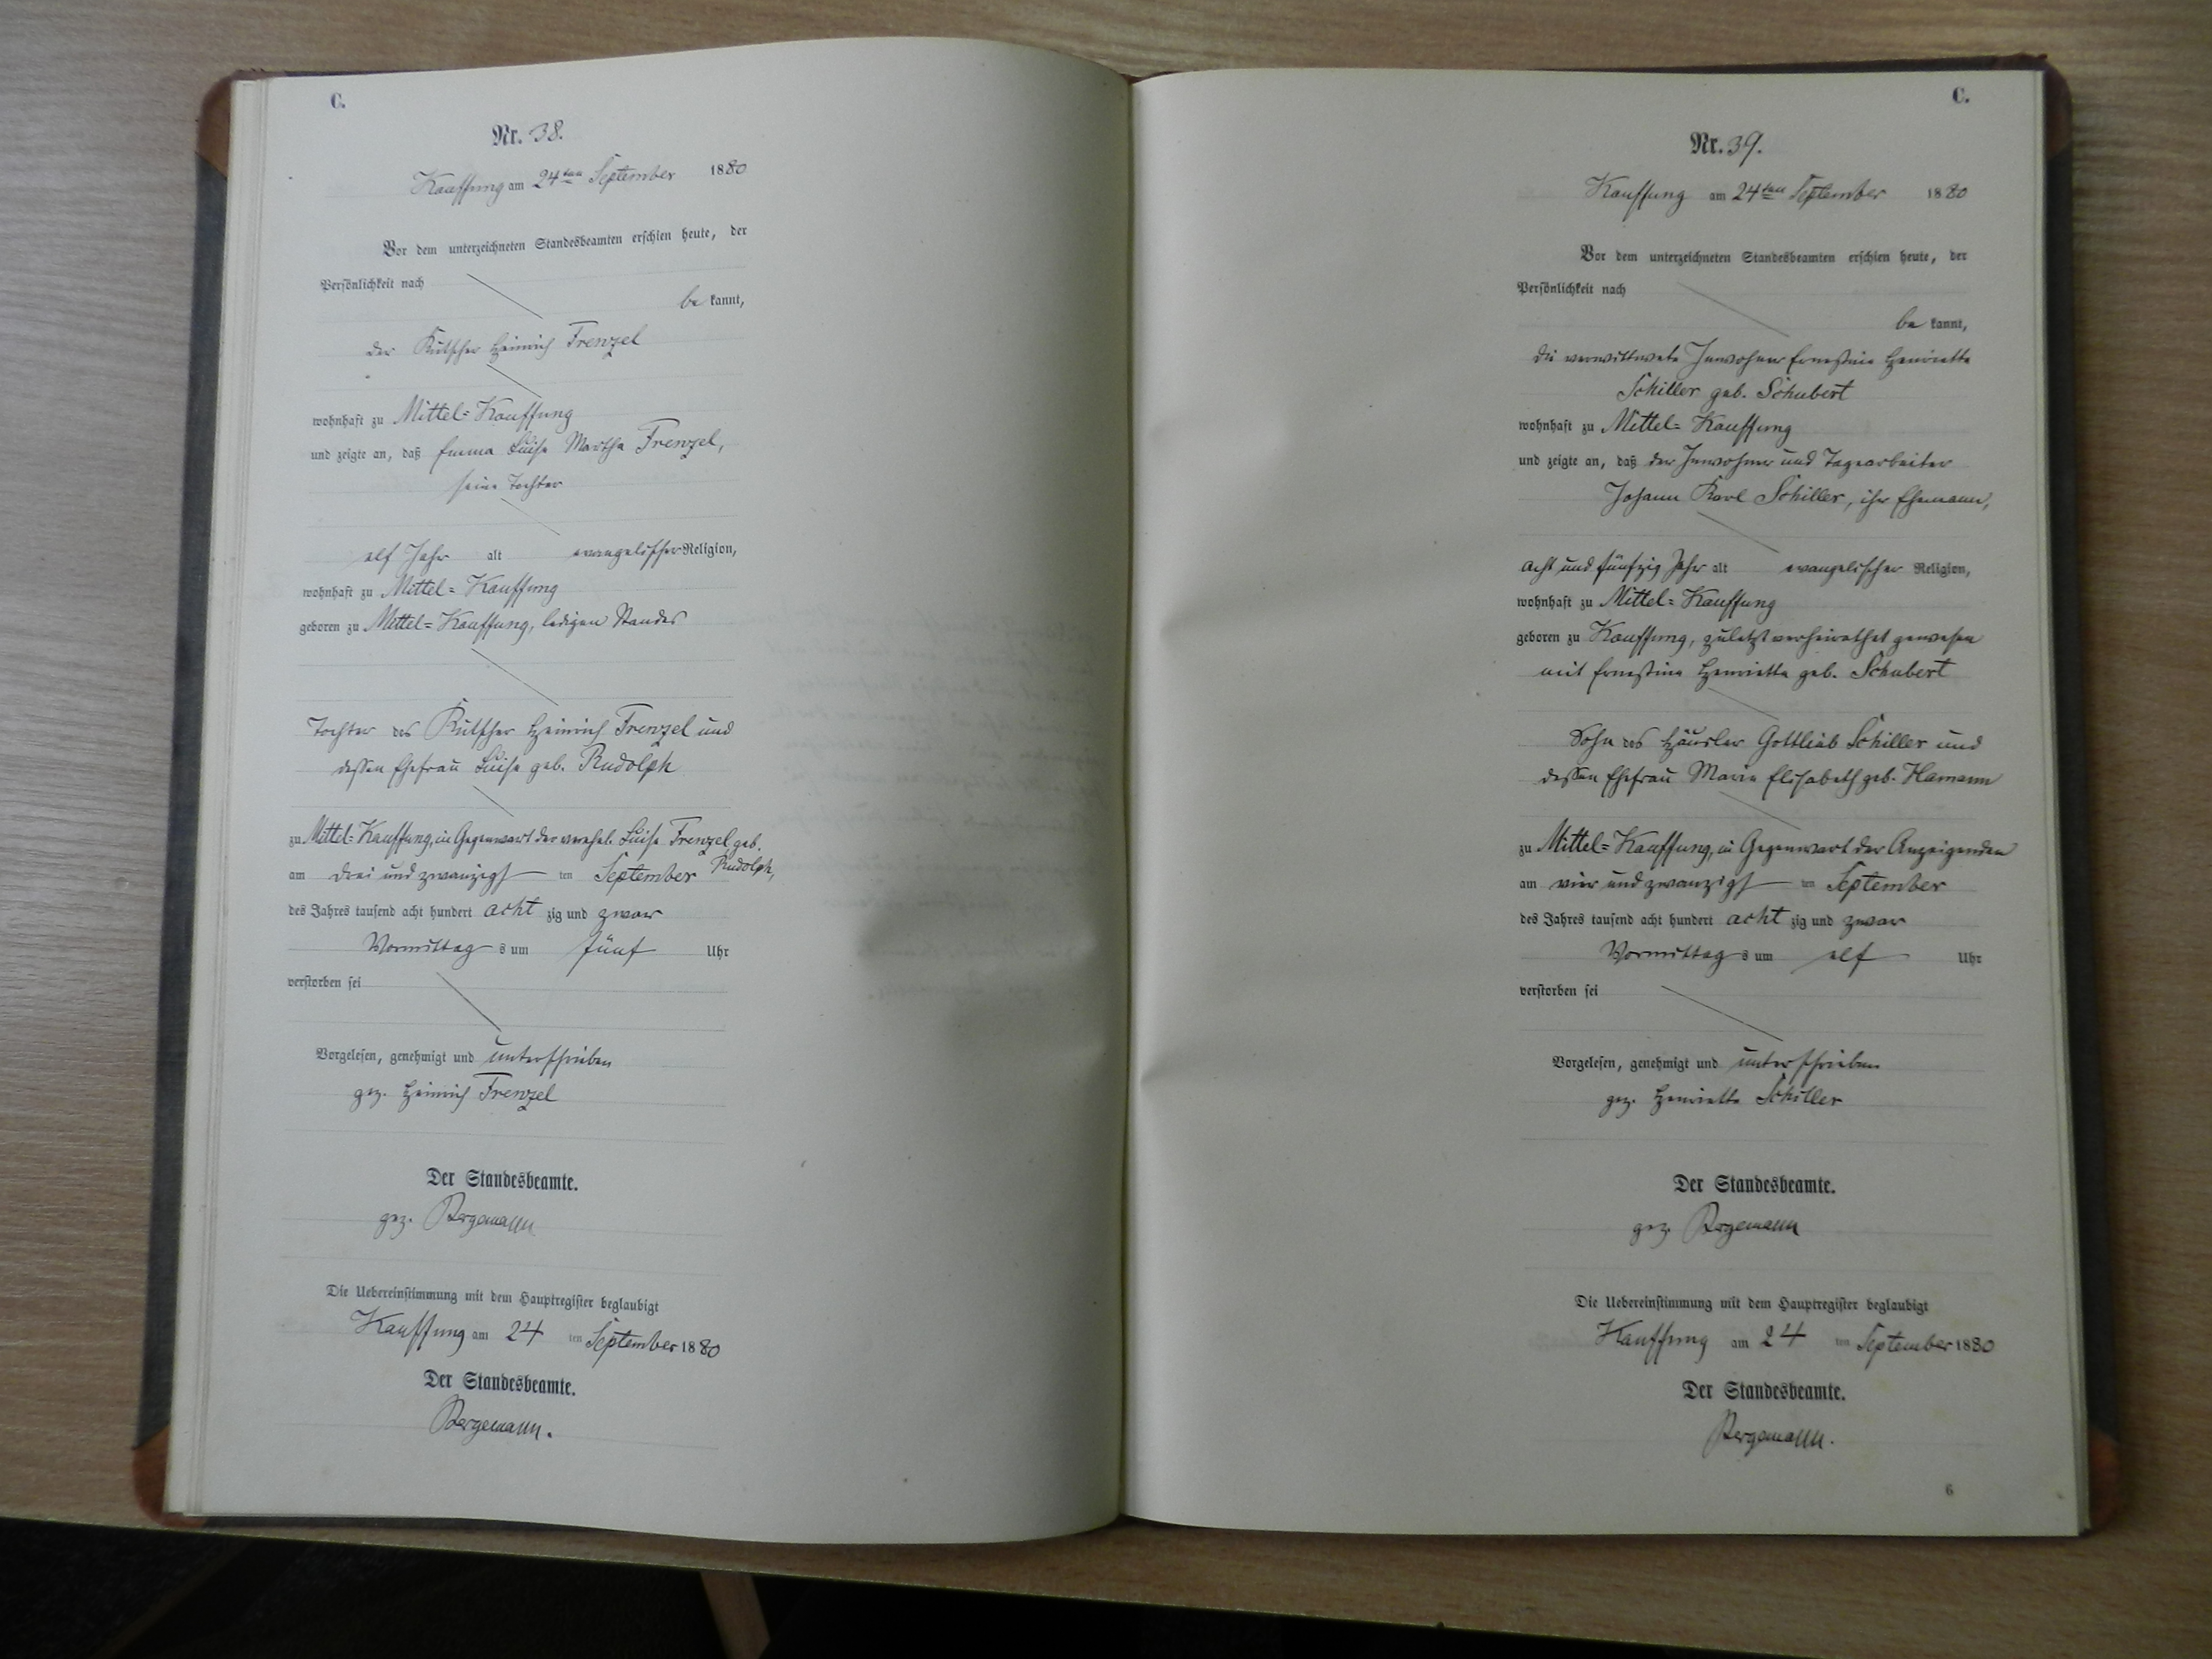 C.
Nr. 38.
Kauffung am 24ten September 1880
Vor dem unterzeichneten Standesbeamten erschien heute, der
Persönlichkeit nach
be kannt,
der Kutscher Heinrich Frenzel
wohnhaft zu Mittel=Kauffung
und zeigte an, daß Emma Luise Martha Frenzel,
seine Tochter
elf Jahr alt evangelischer Religion,
wohnhaft zu Mittel=Kauffung
geboren zu Mittel=Kauffung, ledigen Standes
Tochter des Kutscher Heinrich Frenzel und
dessen Ehefrau Luise geb. Rudolph
zu Mittel=Kauffung, in Gegenwart der verehel. Luise Frenzel geb.
Rudolph,
am drei und zwanzigst ten September
des Jahres tausend acht hundert acht zig und zwar
Vormittag s um fünf Uhr
verstorben sei
Vorgelesen, genehmigt und unterschrieben
gez. Heinrich Frenzel
Der Standesbeamte.
gez. Bergemann
Die Uebereinstimmung mit dem Hauptregister beglaubigt
Kauffung am 24 ten September 1880
Der Standesbeamte.
Bergemann.
C.
Nr. 39.
Kauffung am 24ten September 1880
Vor dem unterzeichneten Standesbeamten erschien heute, der
Persönlichkeit nach
be kannt,
die verwittwete Inwohner Ernestine Henriette
Schiller geb. Schubert
wohnhaft zu Mittel=Kauffung
und zeigte an, daß der Inwohner und Tagearbeiter
Johann Karl Schiller, ihr Ehemann,
acht und fünfzig Jahr alt evangelischer Religion,
wohnhaft zu Mittel=Kauffung
geboren zu Kauffung, zuletzt verheirathet gewesen
mit Ernestine Henriette geb. Schubert
Sohn des Häusler Gottlieb Schiller und
dessen Ehefrau Marie Elisabeth geb. Hamann
zu Mittel=Kauffung, in Gegenwart der Anzeigenden
am vier und zwanzigst ten September
des Jahres tausend acht hundert acht zig und zwar
Vormittag s um elf Uhr
verstorben sei
Vorgelesen, genehmigt und unterschrieben
gez. Henriette Schiller
Der Standesbeamte.
gez. Bergemann
Die Uebereinstimmung mit dem Hauptregister beglaubigt
Kauffung am 24 ten September 1880
Der Standesbeamte.
Bergemann.
6